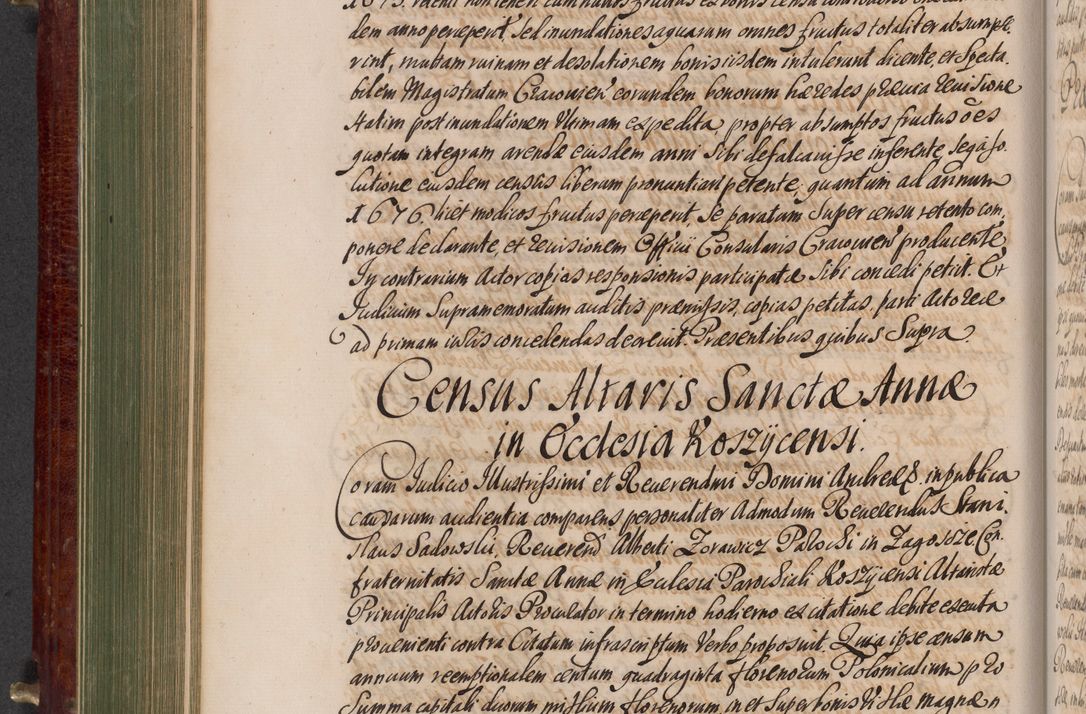 dem anno perceperit, sed inundationes aquarum omnes fructus totaliter absumpse,
rint, multam ruinam et desolationem bonis iisdem intulerunt dicente, et Specta,
bilem Magistratum Cracovien̄ eorundem bonorum hæredes prævia revisione
statim post inundationem ultimam expedita, propter absumptos fructus ões
quotam integram arendæ eiusdem anni sibi defalcavisse inferente, se a so,
lutione eiusdem census liberum pronuntiari petente, quantum ad annum
1676. licet modicos fructus perceperit, se paratum super censu retento com,
ponere declarante, et revisionem Officii Consularis Cracovien̄ producente,
In contrarium Actor copias responsionis participatæ sibi concedi petiit. Et
Iudicium supramemoratum auditis præmissis, copias petitas, parti Actoreæ
ad primam iuris concedendas decrevit. Præsentibus quibus supra.
Census Altaris Sanctæ Annæ
in Ecclesia Koszycensi.
Coram Iudicio Illustrissimi et Reverendmi Domini Andreæ &. in publica
causarum audientia comparens personaliter Admodum Reverendus Stani,
slaus Sadowski, Reverend Alberti Zorawicz Parochi in Zagoscie, Con,
fraternitatis Sanctæ Annæ in Ecclesia Parochiali Koszycensi Altaristæ
Principalis Actoris Procurator in termino hodierno ex citatione debite executa
provenienti contra Citatum infrascriptum verbo proposuit. Quia ipse censum
annuum reemptionalem centum quadraginta florenorum Polonicalium pro
Summa capitali duorum millium florenorum, in et super bonis Villæ magnæ